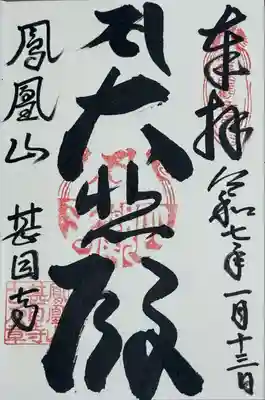 奉拝
令和七年一月十三日
大悲殿
鳳凰山
甚目寺